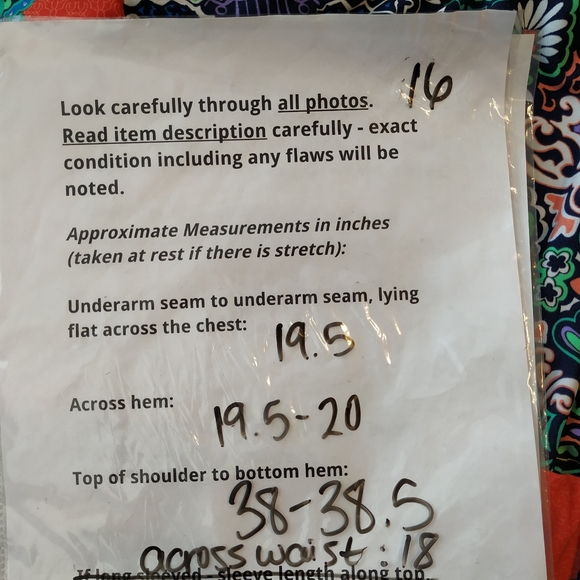 16
Look carefully through all photos.
Read item description carefully - exact
condition including any flaws will be
noted.
Approximate Measurements in inches
(taken at rest if there is stretch):
Underarm seam to underarm seam, lying
flat across the chest: 19.5
Across hem: 19.5-20
Top of shoulder to bottom hem:
38-38.5
across waist: 18
If long sleeved - sleeve length along top